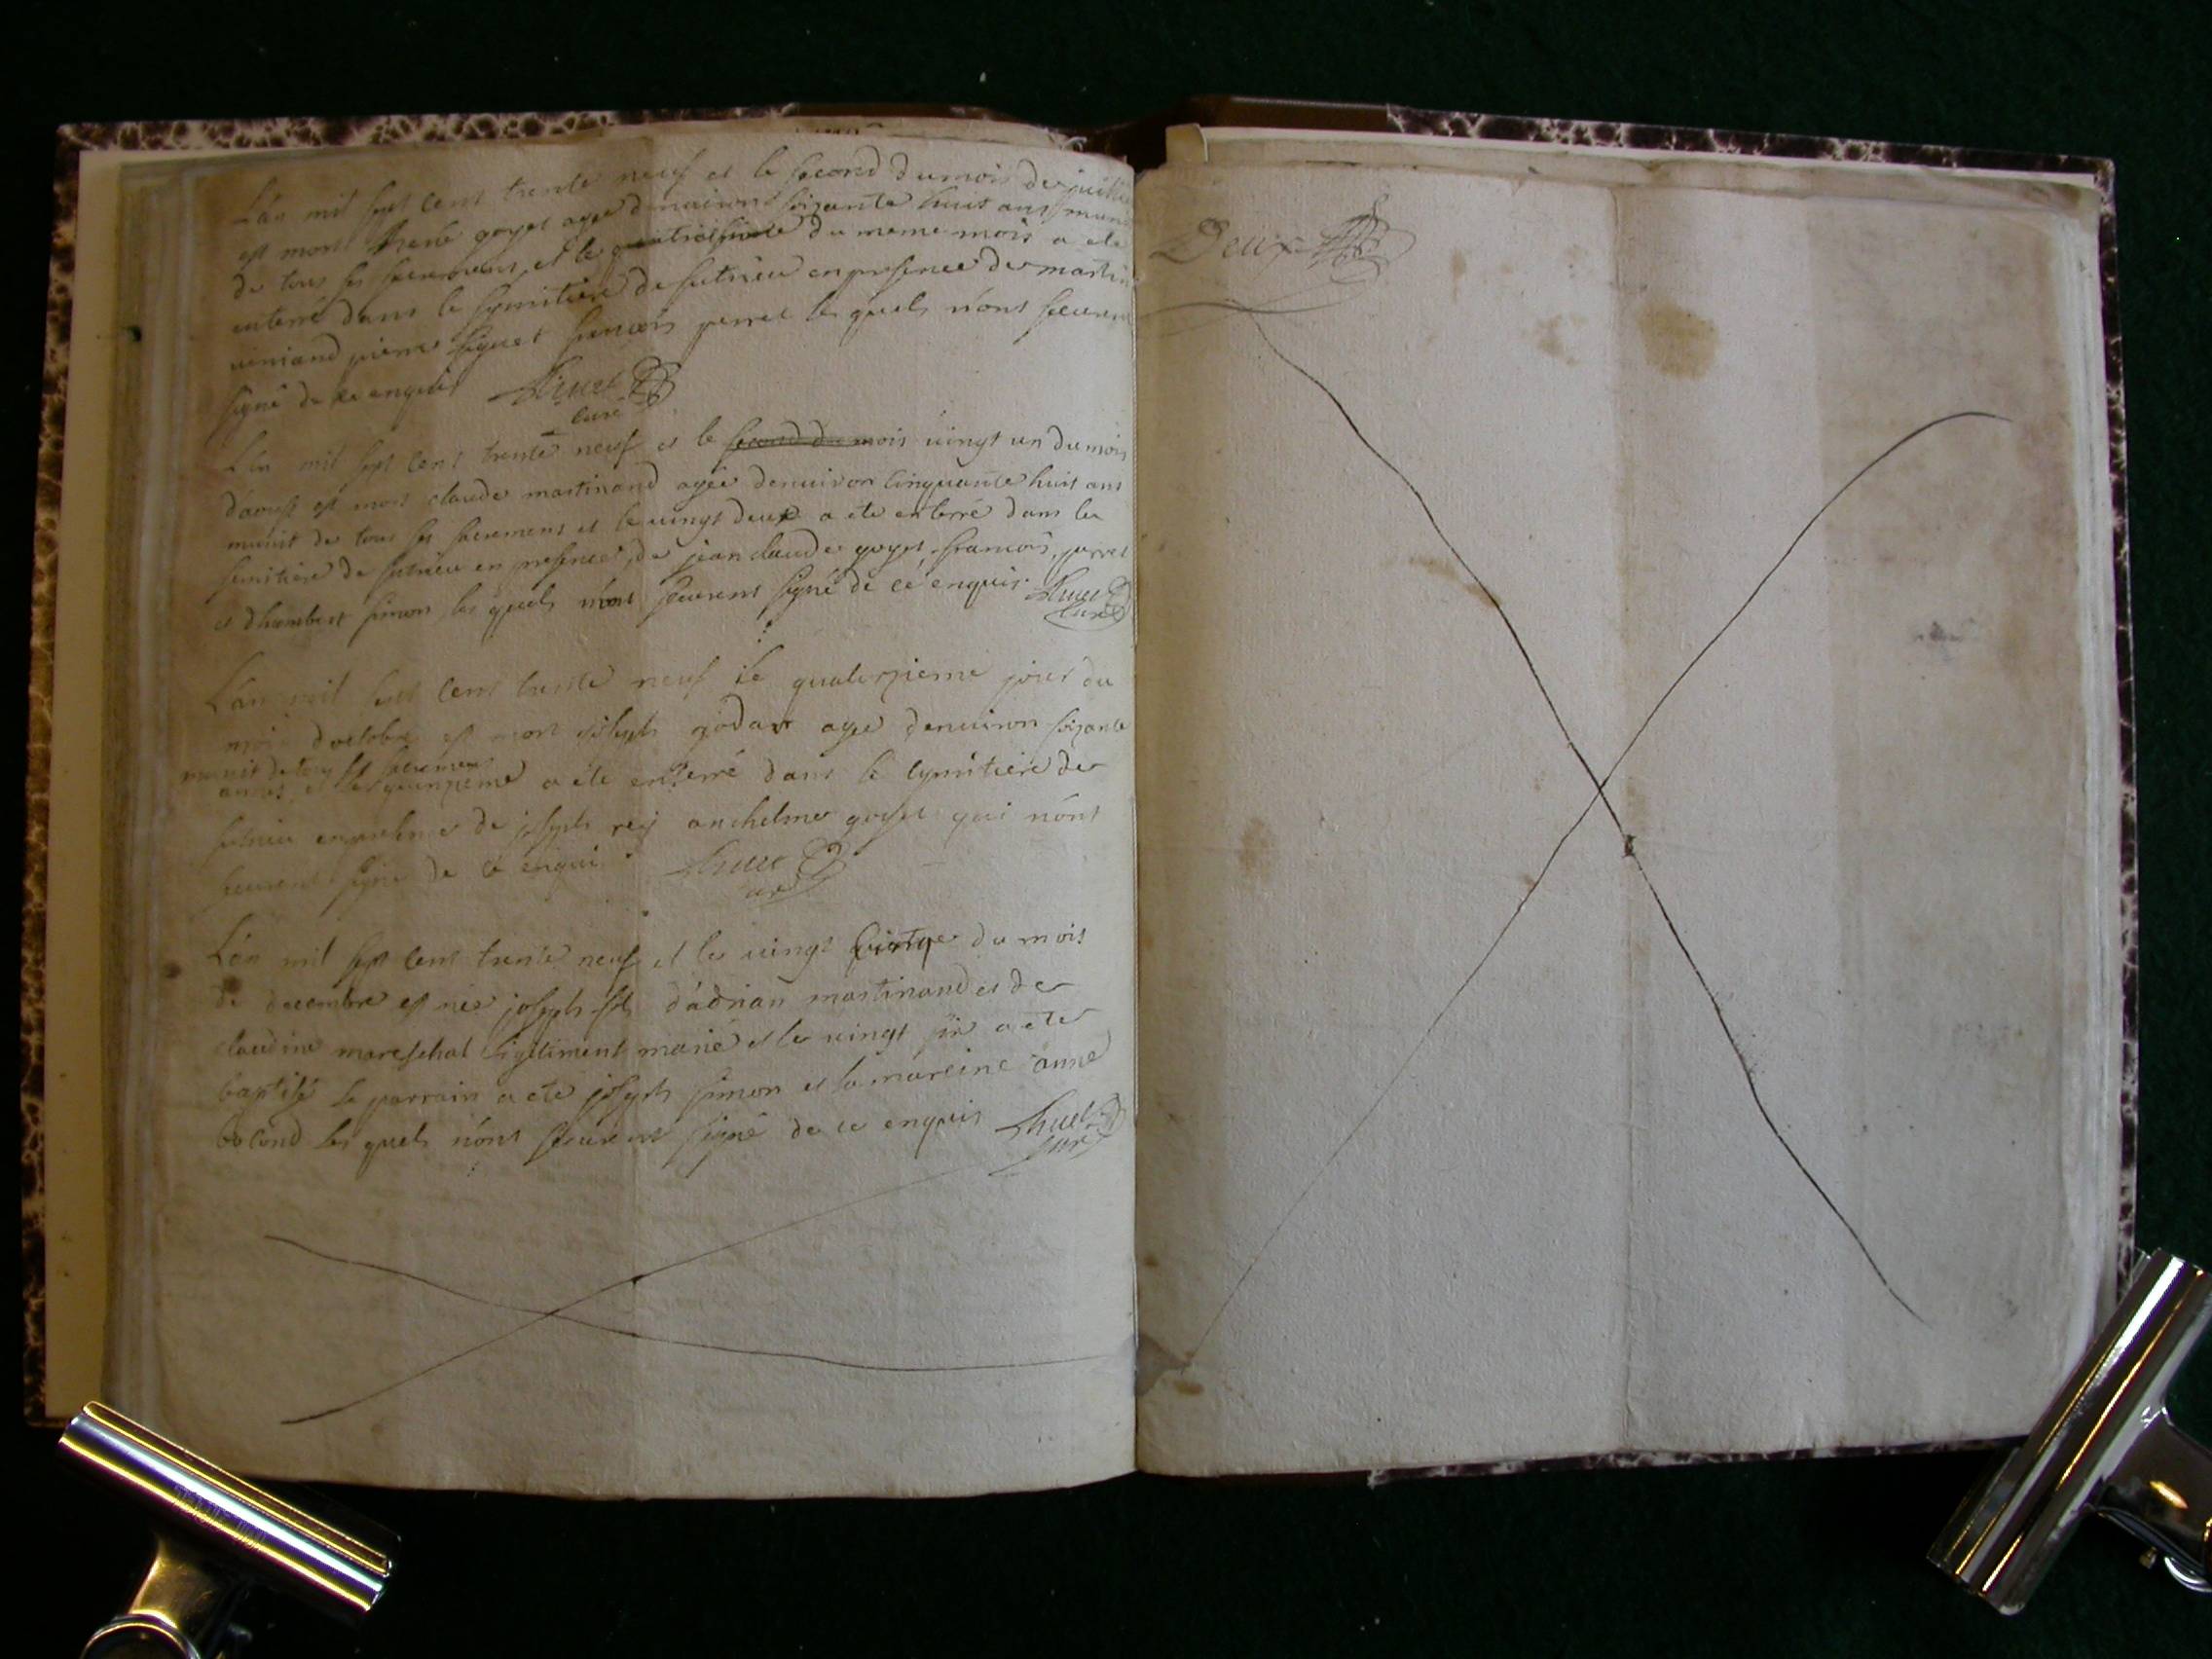 L'an mil sept cent trente neuf et le second du mois de juillet
est mort goyet agée d'environ soixante huit ans muni
de tous ses sacremens et le du meme mois a ete
enterré dans le symitiere de sutrieu en presence de martin
pierre siguet francois perret les quels n'ont sceurent
signé de ce enquis Huet
curé
L'an mil sept cent trente neuf et le second du mois vingt un du mois
d'aoust est mort claude martinand agée denviron cinquante huit ans
munit de tous ses sacremens et le vingt deux a ete enterré dans le
semitiere de sutrieu en presence de jean claude goyet francois perret
et dhumbert simon les quels n'ont sceurent signé de ce enquis Huet
curé
L'an mil sept cent trente neuf le quatorzieme jour du
mois d'octobre est mort joseph godar agée denviron soixante
munit de tous ses sacremens
annés et le quinzieme a ete enterré dans le cymitiere de
sutrieu en presence de joseph rey anthelme goyet qui n'ont
sceurent signé de ce enquis Huet
curé
L'an mil sept cent trente neuf et le vingt cinq du mois
de decembre est né joseph fils d'adrian martinand et de
claudine mareschal legitiment marié et le vingt six a ete
baptisé le parrain a ete joseph simon et la mareine anne
les quels n'ont sceurent signé de ce enquis Huet
curé
Deux